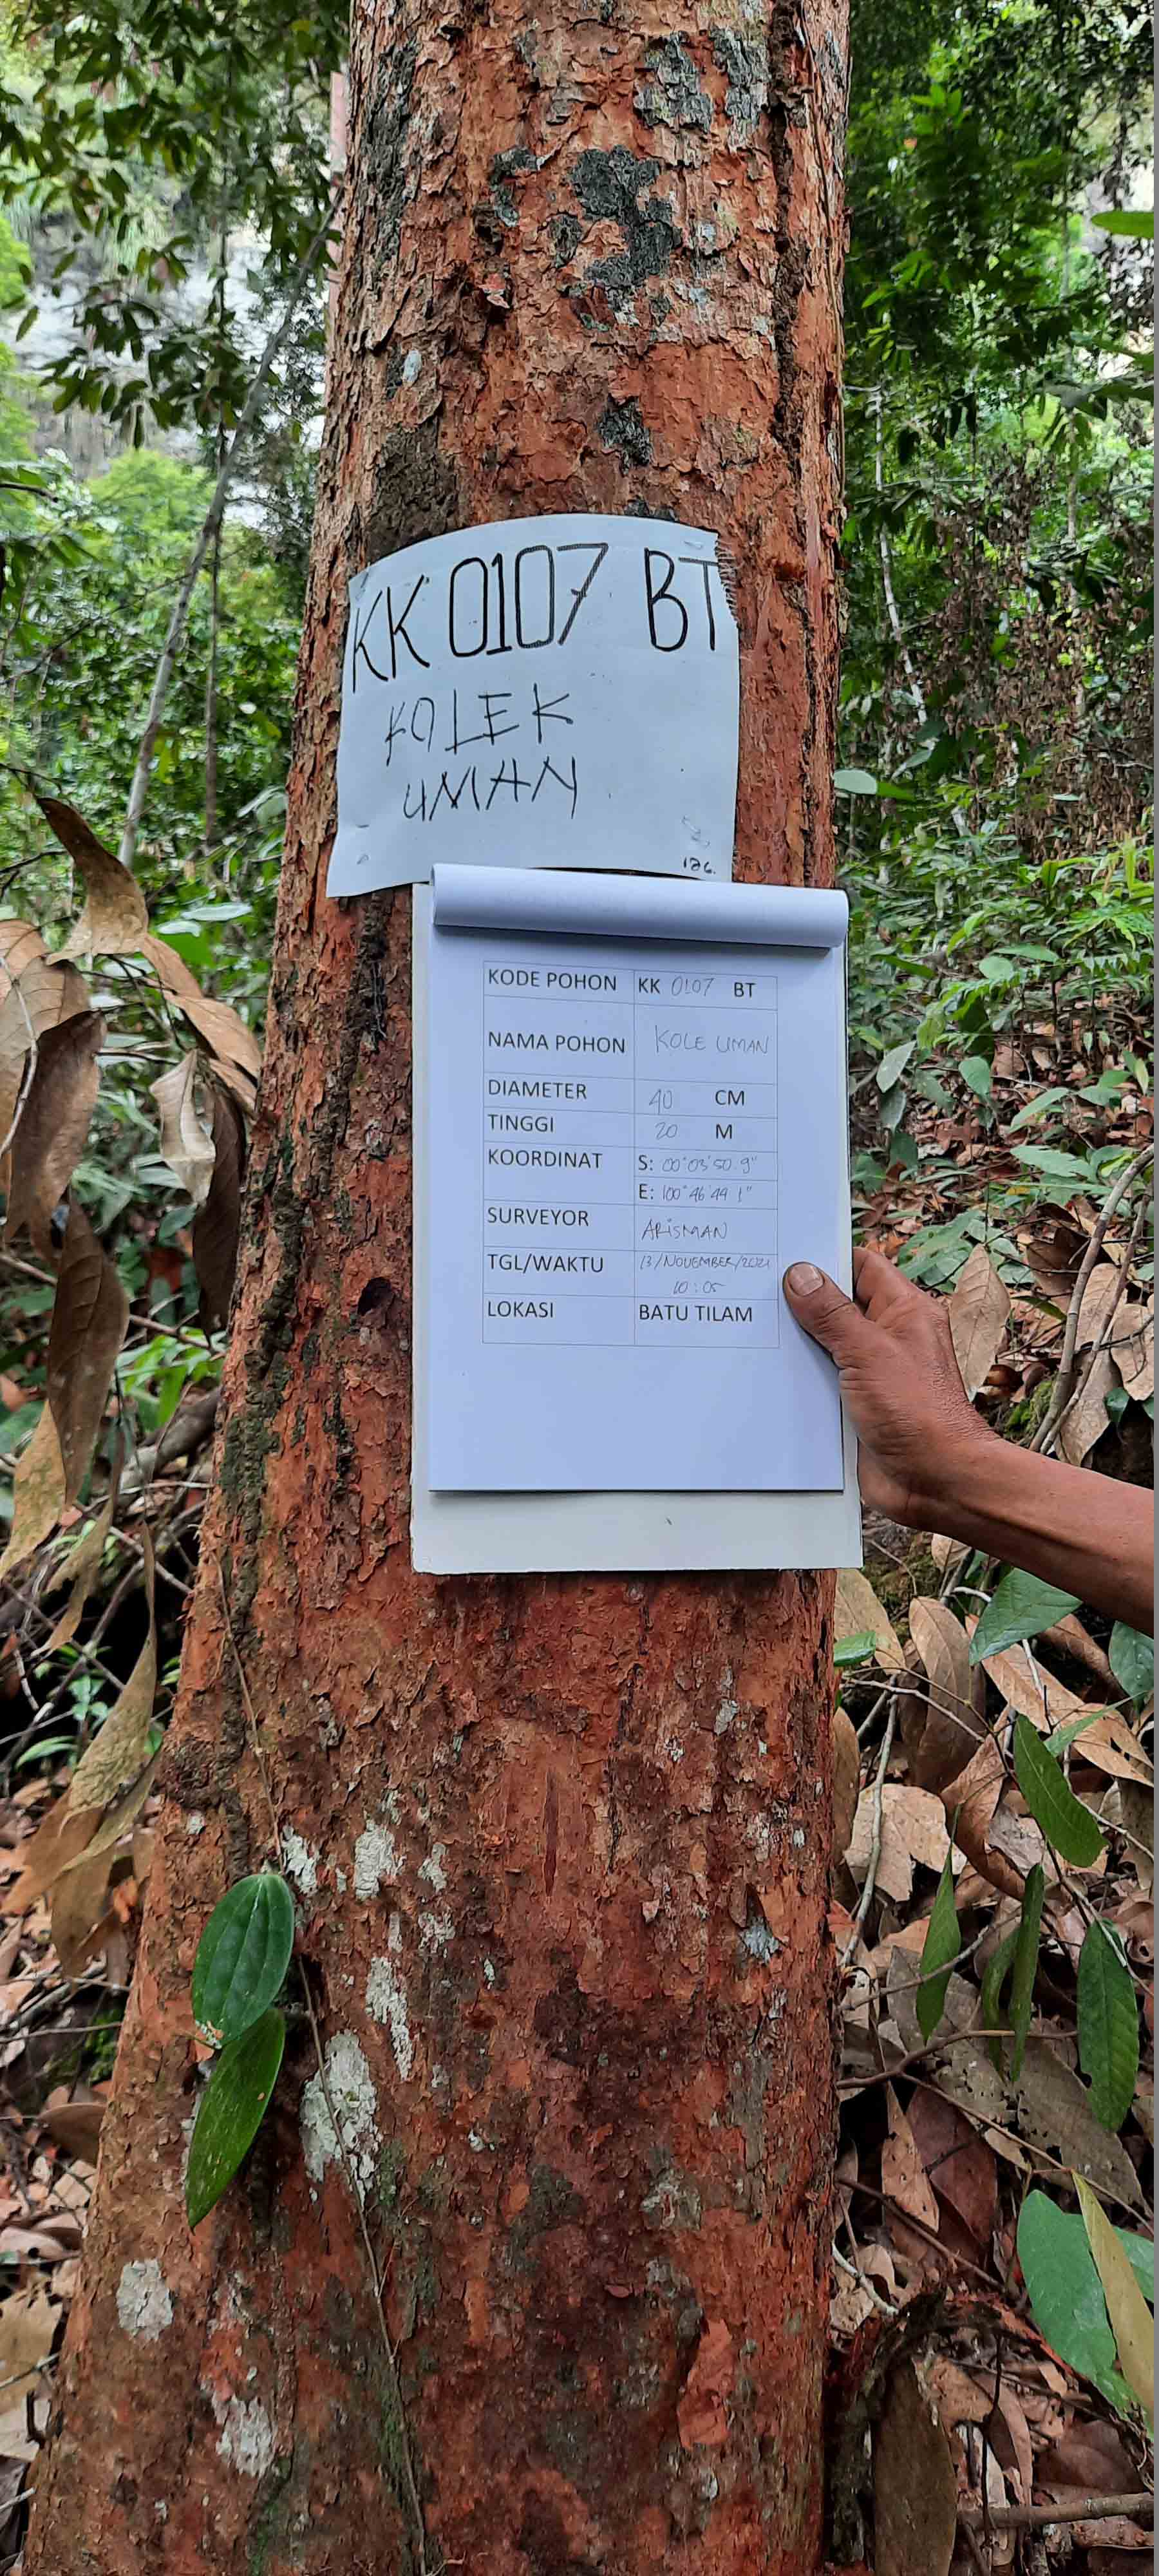 KK 0107 BT
KOLEK
UMAN
126.
KODE POHON KK 0107 BT
NAMA POHON KOLE UMAN
DIAMETER 40 CM
TINGGI 20 M
KOORDINAT S: 00°03'50.9"
E: 100°46'49.1"
SURVEYOR ARISMAN
TGL/WAKTU 13/NOVEMBER/2021
10:05
LOKASI BATU TILAM